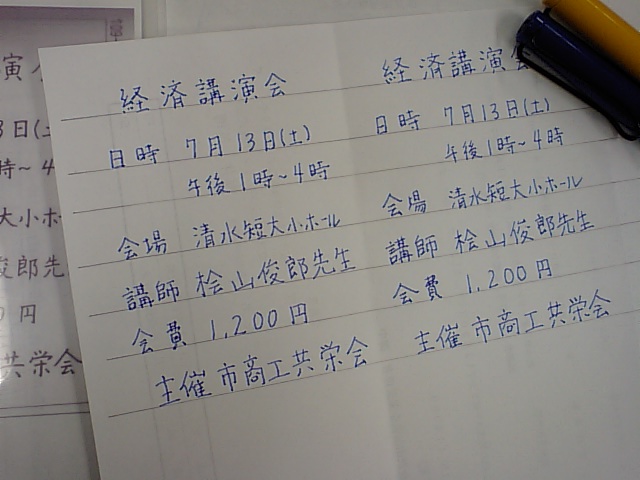 経済講演会
日時 7月13日(土)
午後1時~4時
会場 清水短大小ホール
講師 桧山俊郎先生
会費 1,200円
主催 市商工共栄会
経済講演会
日時 7月13日(土)
午後1時~4時
会場 清水短大小ホール
講師 桧山俊郎先生
会費 1,200円
主催 市商工共栄会
演
3日(土
時~4
大小ホ
俊郎先
円
共栄会